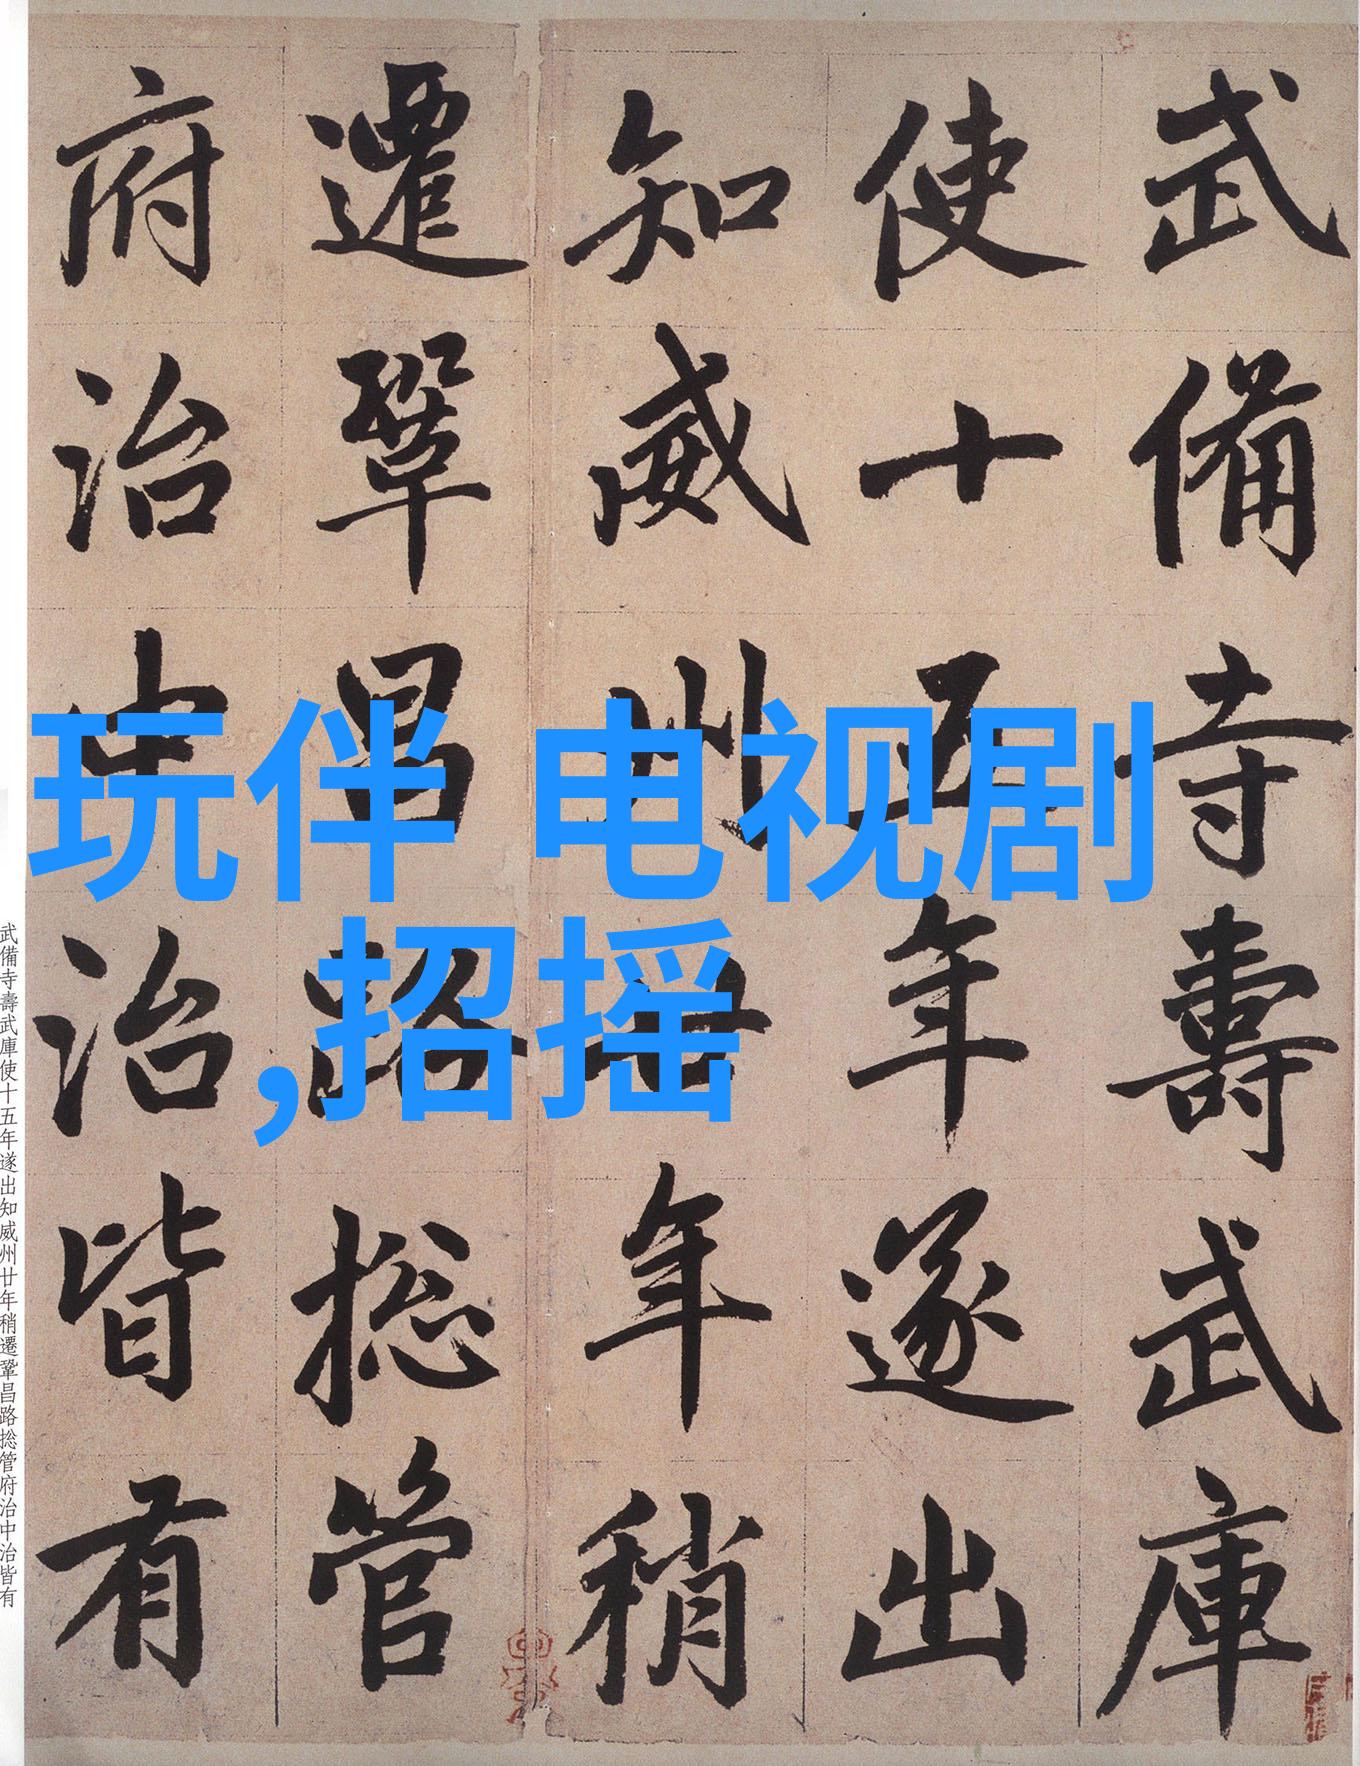 武備寺壽武庫
使十五年遂出
知威州廿年稍
遷鞏昌路捴管
府治中治皆有
玩伴 电视剧
,招摇
武備寺壽武庫使十五年遂出知威州廿年稍遷鞏昌路捴管府治中治皆有